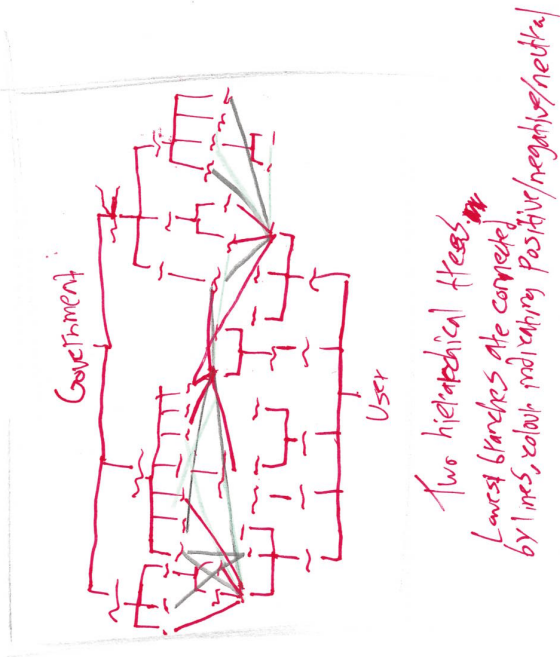 Government
User
Two hierarchical trees.
Lowest branches are connected
by lines, colour indicating positive/negative/neutral